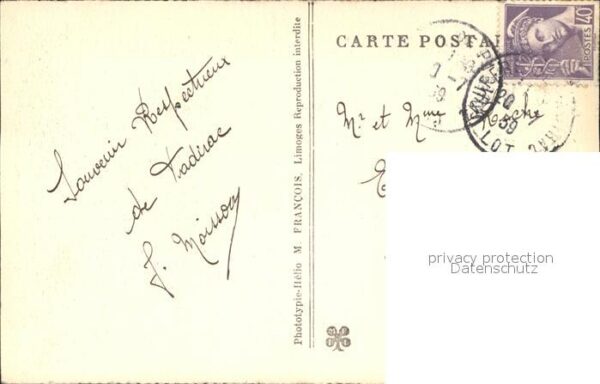 Souvenir Respectueux
de Padirac
J. Moisson
Phototypie-Hélio M. FRANÇOIS, Limoges Reproduction interdite
CARTE POSTAL
40
POSTES
20
39
LOT
Mr et Mme
privacy protection
Datenschutz